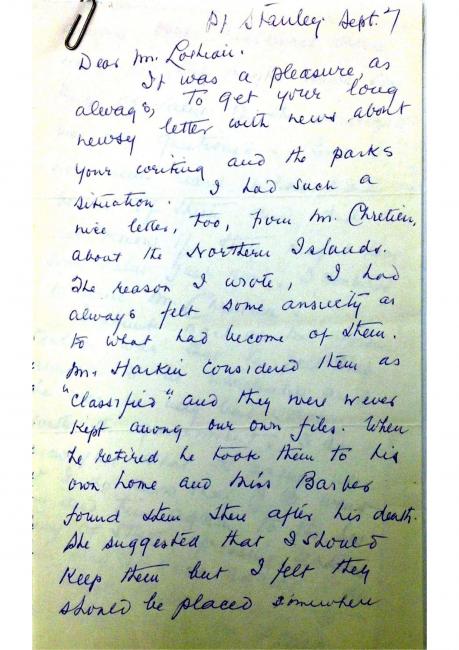 Pt Stanley Sept. 7
Dear Mr. Lothian.
It was a pleasure, as
always, to get your long
newsy letter with news about
your writing and the parks
situation. I had such a
nice letter, too, from Mr. Chretien,
about the Northern Islands.
The reason I wrote, I had
always felt some anxiety as
to what had become of them.
Mr. Harkin considered them as
"classified" and they were never
kept among our own files. When
he retired he took them to his
own home and Miss Barber
found them there after his death.
She suggested that I should
keep them but I felt they
should be placed somewhere